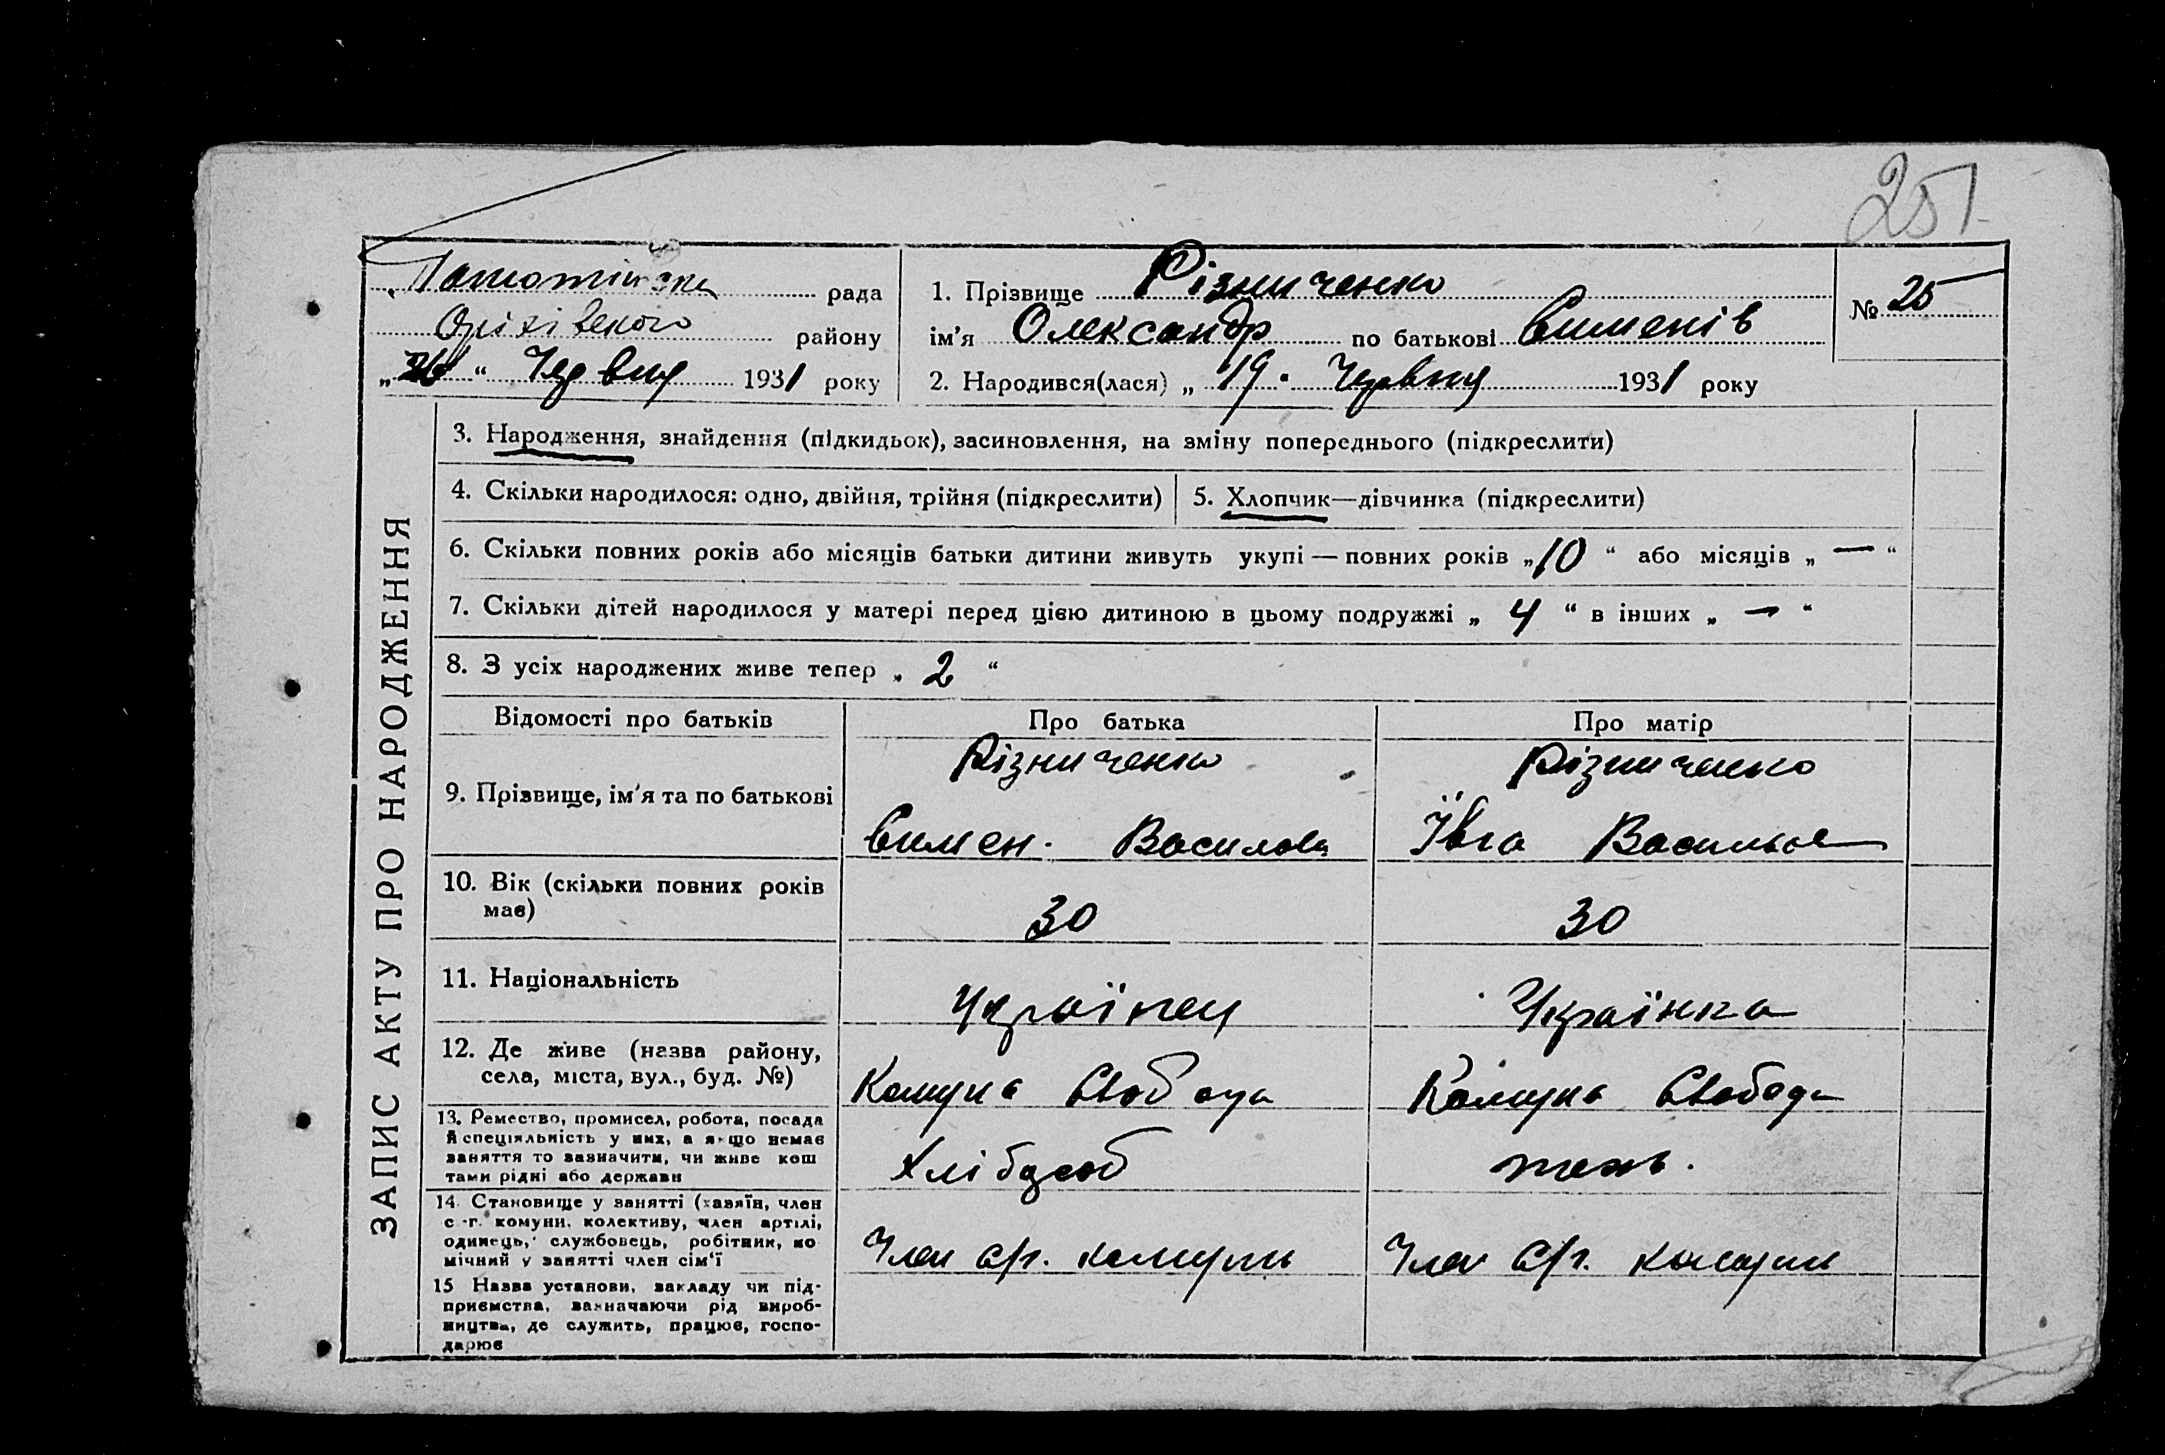 251
рада
Оріхівського району
„ “ Червня 1931 року
1. Прізвище Різниченко
ім'я Олександр по батькові Сименів
2. Народився(лася) „ 19 · Червня 1931 року
№ 25
ЗАПИС АКТУ ПРО НАРОДЖЕННЯ
3. Народження, знайдення (підкидьок), засиновлення, на зміну попереднього (підкреслити)
4. Скільки народилося: одно, двійня, трійня (підкреслити)
5. Хлопчик—дівчинка (підкреслити)
6. Скільки повних років або місяців батьки дитини живуть укупі — повних років „ 10 “ або місяців „ — “
7. Скільки дітей народилося у матері перед цією дитиною в цьому подружжі „ 4 “ в інших „ — “
8. З усіх народжених живе тепер „ 2 “
Відомості про батьків
Про батька
Про матір
9. Прізвище, ім'я та по батькові
Різниченко
Симен. Василов
Різниченко
Ївга Васильов
10. Вік (скільки повних років
має)
30
30
11. Національність
Українец
Українка
12. Де живе (назва району,
села, міста, вул., буд. №)
Комуна Свобода
Комуна Свобода
13. Ремество, промисел, робота, посада
й спеціяльність у них, а якщо немає
заняття то зазначити, чи живе кош
тами рідні або держави
Хлібороб
тежь.
14. Становище у занятті (хазяїн, член
с.-г. комуни, колективу, член артілі,
одинець, службовець, робітник, по
мічний у занятті член сім'ї
Член с/г. комуни
Член с/г. комуни
15 Назва установи, закладу чи під-
приємства, зазначаючи рід вироб-
ництва, де служить, працює, госпо-
дарює